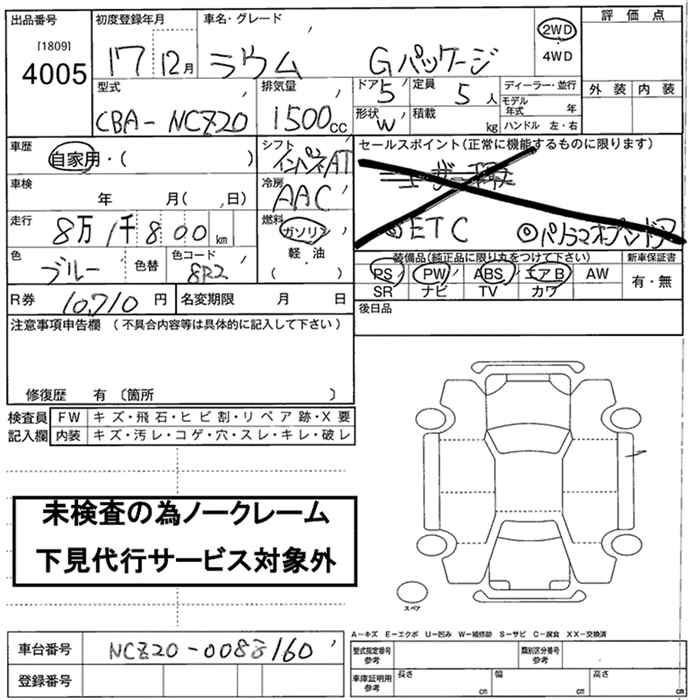 出品番号 初度登録年月 車名・グレード 評価点
[1809]
4005 17 12月 ラウム Gパッケージ 2WD
4WD
型式 排気量 ドア 5 定員 5 人 ディーラー・並行 外装 内装
モデル年式 年
CBA-NCZ20 1500cc 形状 W 積載 kg ハンドル 左・右
車歴 自家用・( ) シフト インパネAT セールスポイント(正常に機能するものに限ります)
車検 年 月( 日) 冷房 AAC
走行 8万1千800km 燃料 ガソリン ◎ETC ◎パノラマオープンドア
軽油
( )
色 ブルー 色替 色コード 8R2 装備品(純正品に限り丸をつけて下さい) 新車保証書
PS PW ABS エアB AW 有・無
SR ナビ TV カワ
R券 10,710円 名変期限 月 日 後日品
注意事項申告欄 (不具合内容等は具体的に記入して下さい)
修復歴 有 〔箇所 〕
検査員 FW キズ・飛石・ヒビ割・リペア跡・X要
記入欄 内装 キズ・汚レ・コゲ・穴・スレ・キレ・破レ
未検査の為ノークレーム
下見代行サービス対象外
スペア
A-キズ E-エクボ U-凹み W-補修跡 S-サビ C-腐食 XX-交換済
車台番号 NCZ20-0088160 型式指定番号 参考 類別区分番号 参考
登録番号 車庫証明用 参考 長さ cm 幅 cm 高さ cm